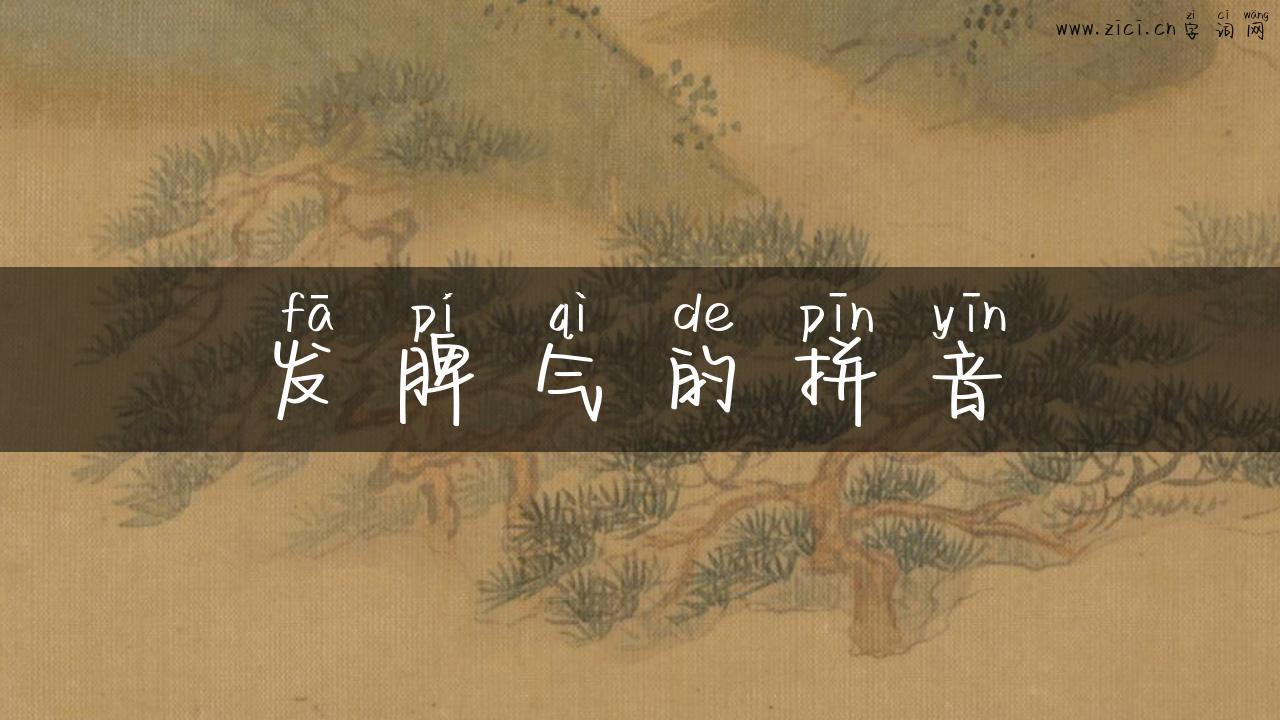 zì cí wǎng
www.zici.cn 字 词 网
fā pí qì de pīn yīn
发 脾 气 的 拼 音